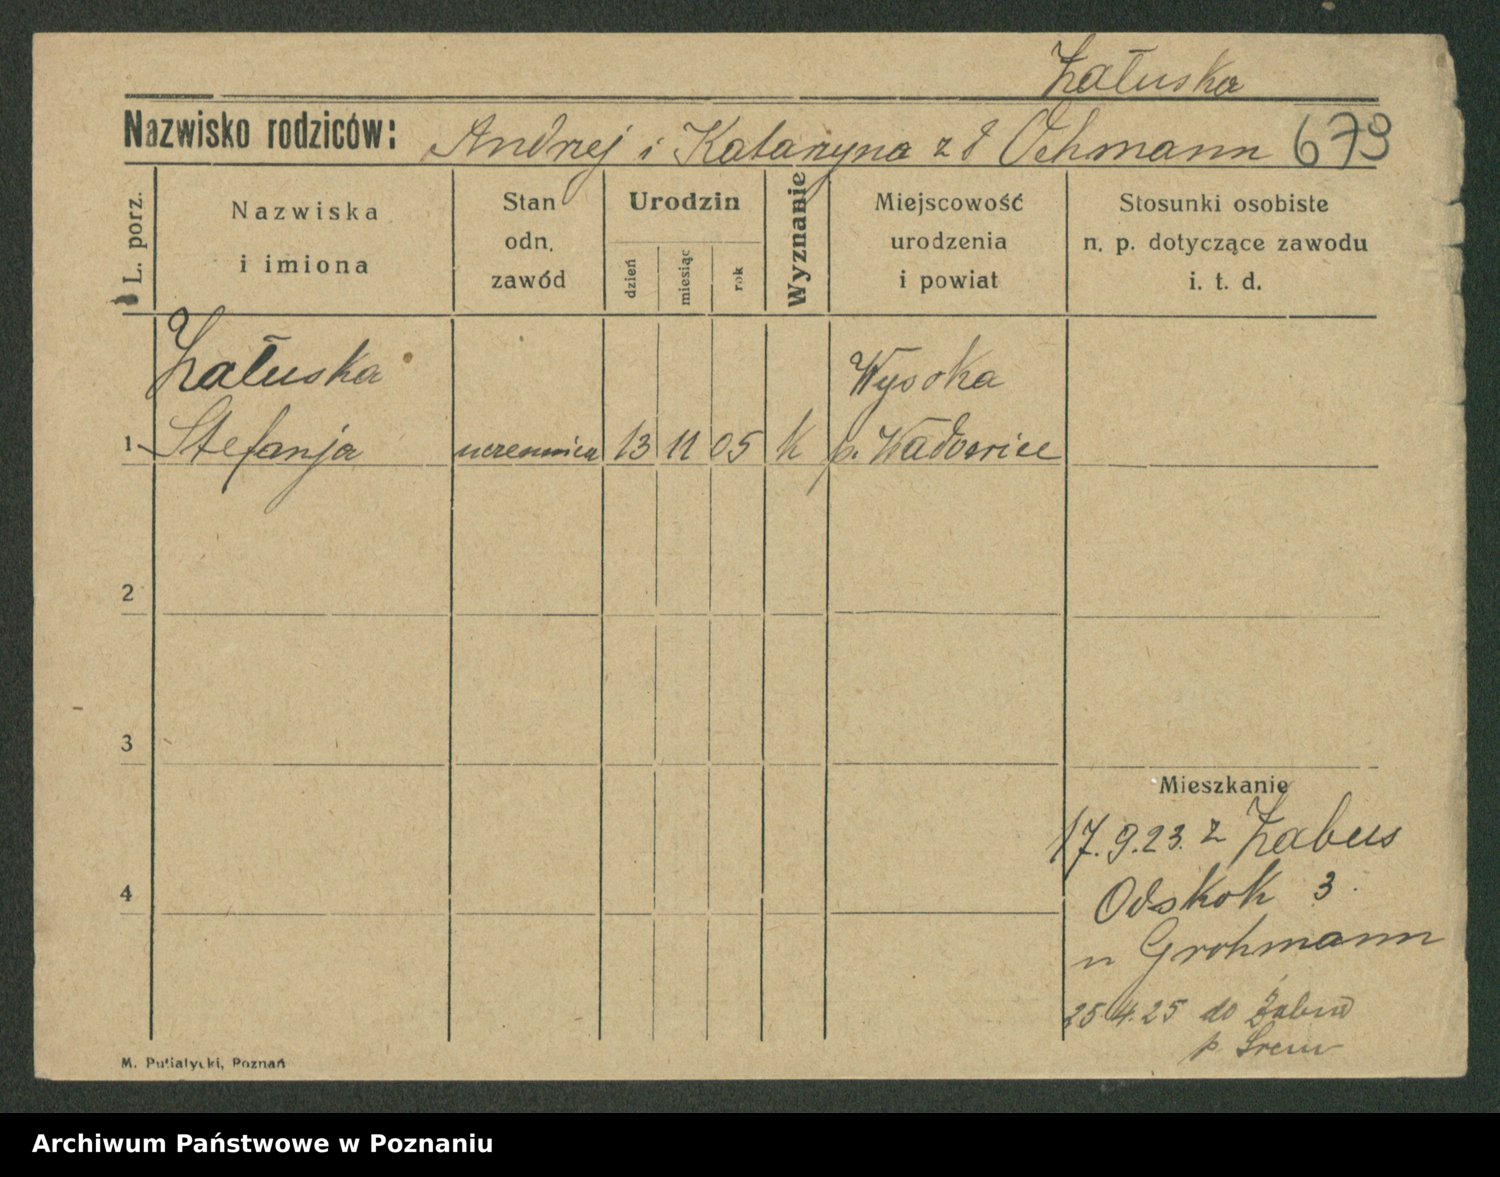 Załuska
Nazwisko rodziców: Andrzej i Katarzyna z d Ochmann 679
L. porz.
Nazwiska
i imiona
Stan
odn.
zawód
Urodzin
dzień
miesiąc
rok
Wyznanie
Miejscowość
urodzenia
i powiat
Stosunki osobiste
n. p. dotyczące zawodu
i. t. d.
Załuska Wysoka
1 Stefanja uczennica 13 11 05 k p. Wadowice
2
3
Mieszkanie
17.9.23. z Zabus
4 Odskok 3
u Grohmann
25 4.25 do
p Śrem
M. Putiatycki, Poznań
Archiwum Państwowe w Poznaniu